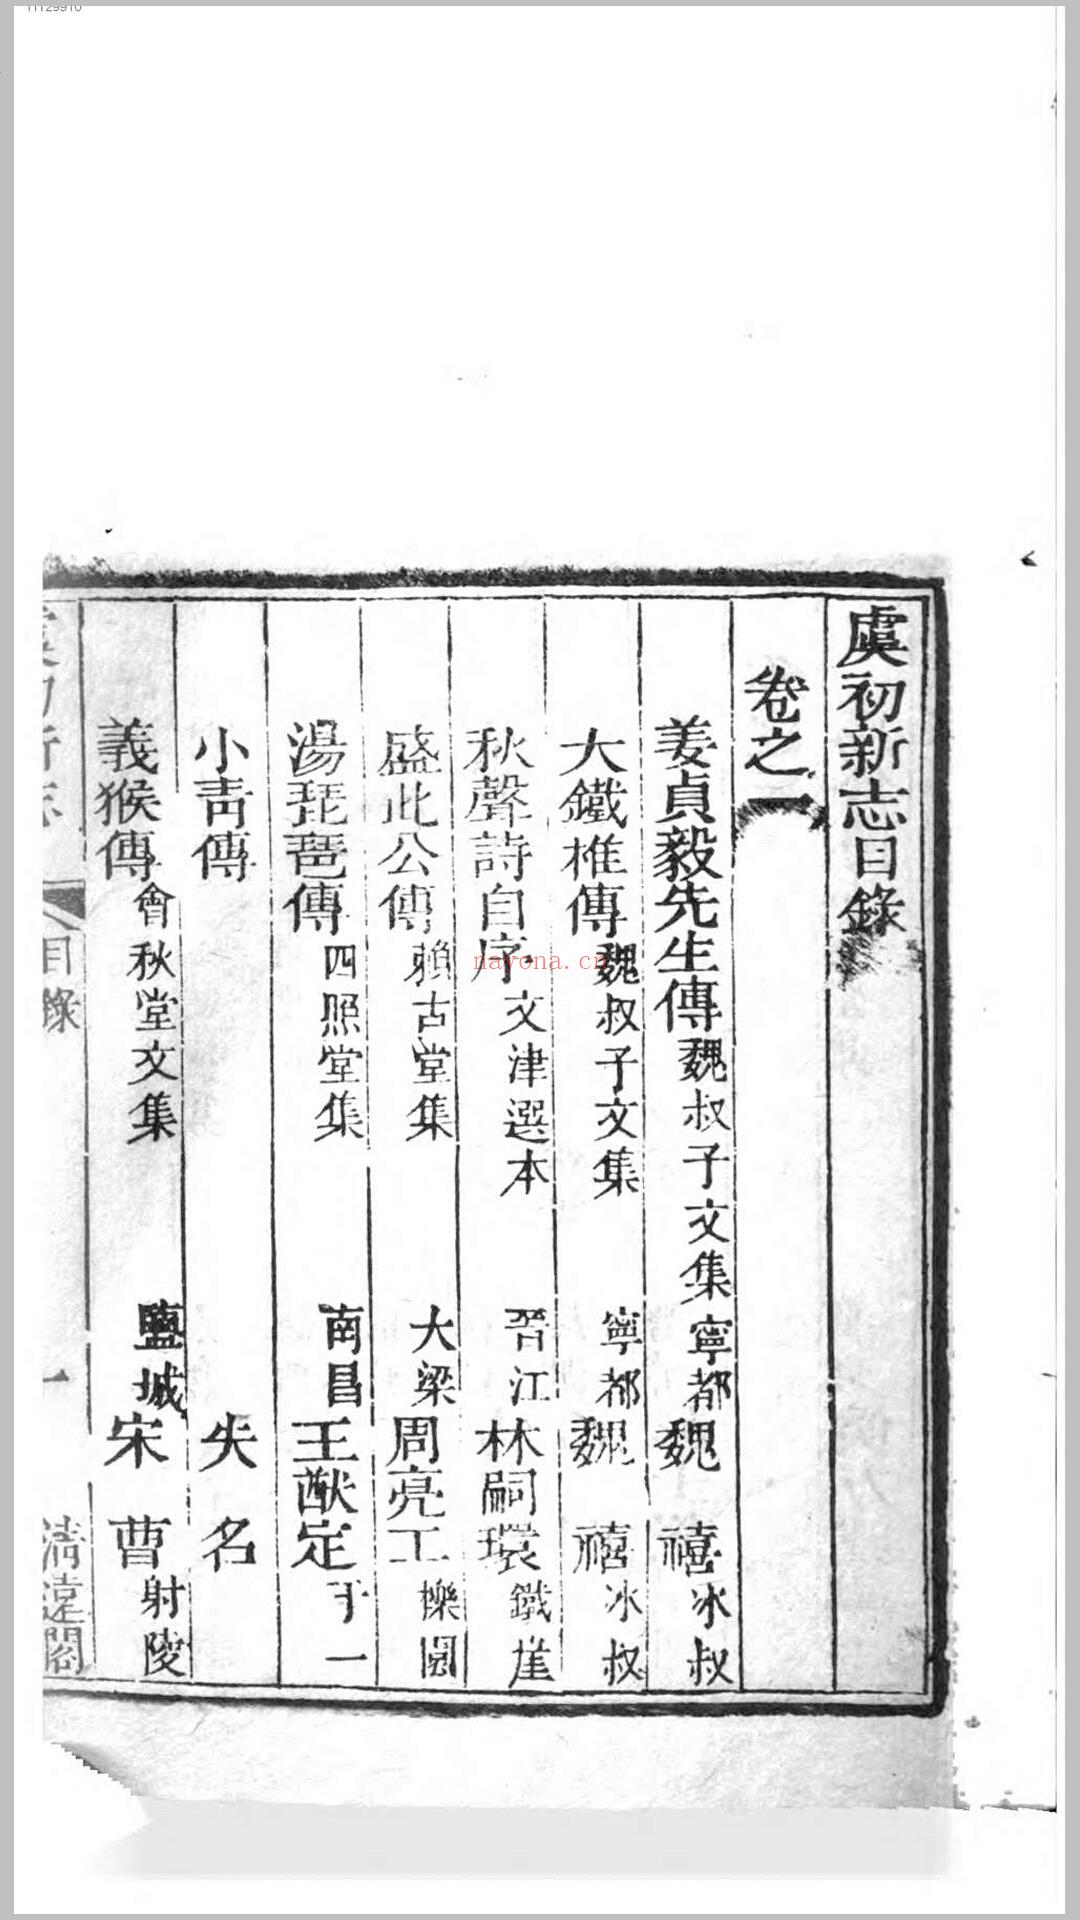 虞初新志目錄
卷之一
姜貞毅先生傳 魏叔子文集 寧都 魏禧 冰叔
大鐵椎傳 魏叔子文集 寧都 魏禧 冰叔
秋聲詩自序 文津選本 晉江 林嗣環 鐵崖
盛此公傳 賴古堂集 大梁 周亮工 櫟園
湯琵琶傳 四照堂集 南昌 王猷定 于一
小青傳 失名
義猴傳 會秋堂文集 鹽城 宋曹 射陵
虞初新志 目錄 一 清遠閣
nayona.cn